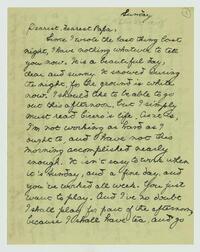 Sunday
Dearest, dearest Papa,
Since I wrote the last thing last
night, I have nothing whatever to tell
you now. It is a beautiful day,
clear and sunny. It snowed during
the night, for the ground is white
now. I should like to be able to go
out this afternoon, but I simply
must read life,
I'm not working as hard as I
ought to, and I have not this
morning accomplished nearly
enough. It isn't easy to work when
it is Sunday, and a fine day, and
you've worked all week. You just
want to play. And I've no doubt
I shall play for part of the afternoon,
because I shall have tea, and go